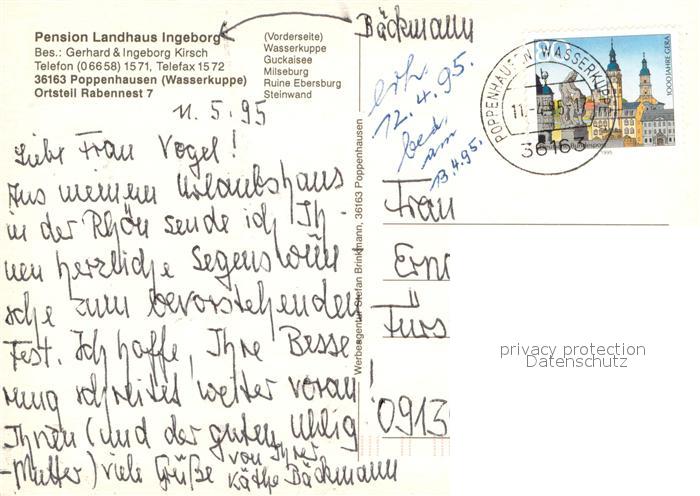 Pension Landhaus Ingeborg
Bes.: Gerhard & Ingeborg Kirsch
Telefon (06658) 1571, Telefax 1572
36163 Poppenhausen (Wasserkuppe)
Ortsteil Rabennest 7
(Vorderseite)
Wasserkuppe
Guckaisee
Milseburg
Ruine Ebersburg
Steinwand
Bäckmann
11.5.95
Liebe Frau Vogel!
Aus meinem Urlaubshaus
in der Rhön sende ich Ih-
nen herzliche Segenswün
sche zum bevorstehenden
Fest. Ich hoffe, Ihre Besse
rung schreitet weiter voran!
Ihnen (und der guten Uhlig
-Mutter) viele Grüße von Ihrer
Käthe Bäckmann
Werbeagentur Stefan Brinkmann, 36163 Poppenhausen
erh.
12.4.95.
bed.
am
13.4.95.
POPPENHAUSEN, WASSERKUPPE
36163
1000 JAHRE GERA
1995
Frau
Ern
Fürs
0913
privacy protection
Datenschutz